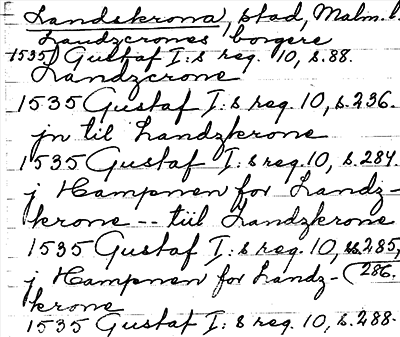 Landskrona, stad, Malm. l.
Landzcrones borgere
1535) Gustaf I:s reg. 10, s. 88.
Landzcrone
1535 Gustaf I:s reg. 10, s. 236.
jn til Landzkrone
1535 Gustaf I:s reg. 10, s. 284.
j Hampnen for Landz-
krone -- till Landzkrone
1535 Gustaf I:s reg. 10, s. 285,
j Hampnen for Landz- (286.
krone
1535 Gustaf I:s reg. 10, s. 288.